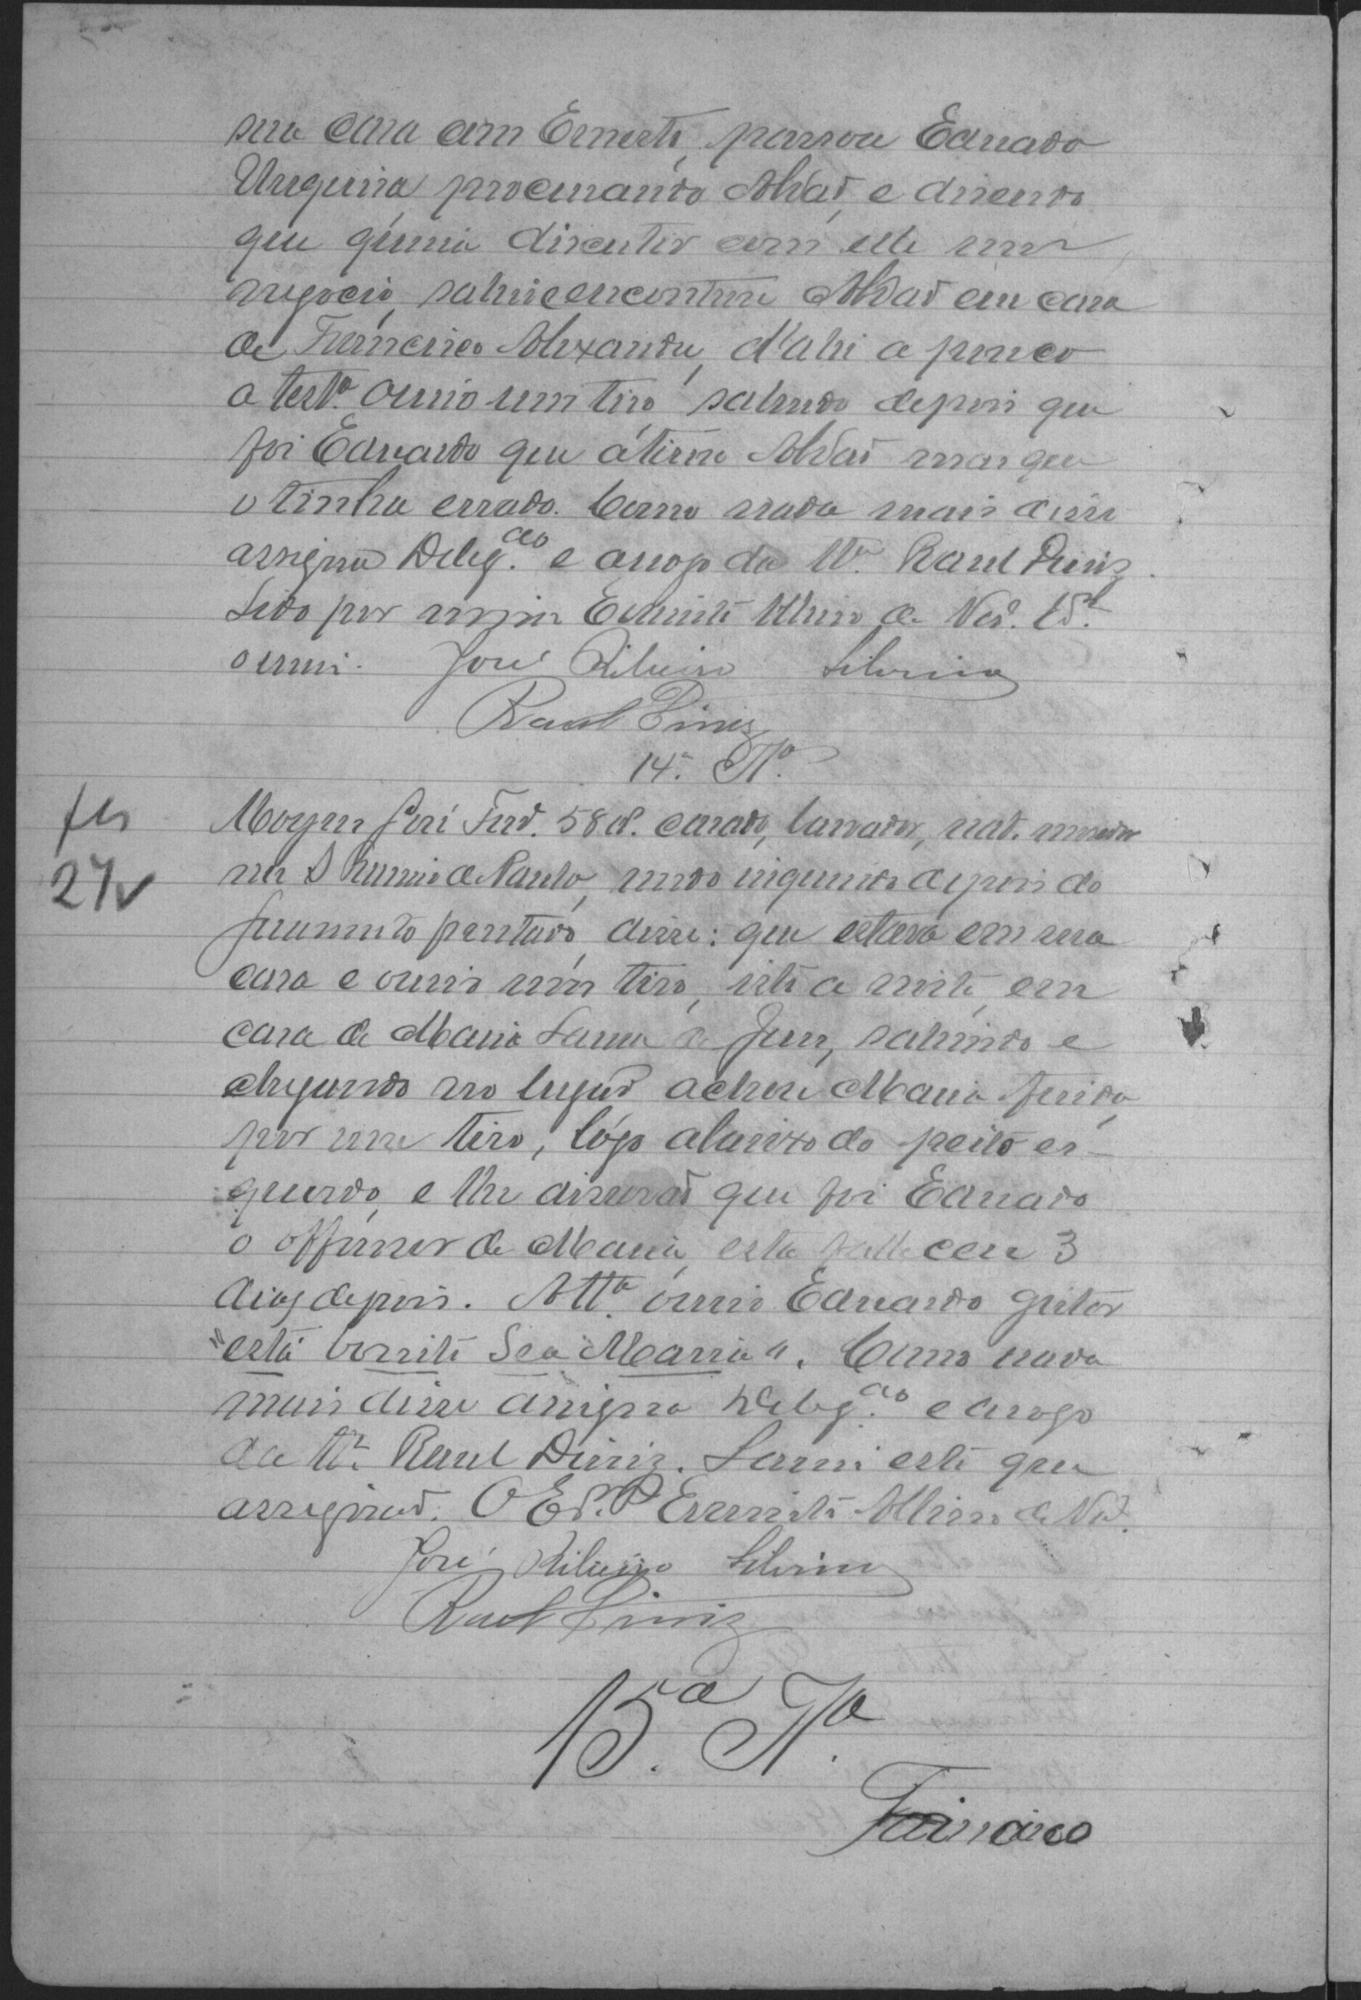 sua casa com Ernesto, passou Eduardo
procurando Abbad, e disendo
que queria discutir com elle um
negocio, sahio e encontrou Abbad em casa
de Francisco Alexandre, d'ahi a pouco
a testª ouvio um tiro sabendo depois que
foi Eduardo que atirou Abbad mas que
o tinha errado. Como nada mais disse
assigna Deleg.do e a rogo da Tª Raul Diniz.
Lido por mim
ouvi. José Ribeiro Silvino
Raul Diniz
14ª Tª
fls
27v
Moyses José Ferrª. 58 a. casado, lavrador, nat. morador
no inquirido depois do
juramento prestado, disse: que estava em sua
casa e ouvio um tiro, isto a noite, em
casa de Maria de Jesus, sahindo e
chegando no lugar achou Maria ferida
por um tiro, logo abaixo do peito es-
querdo, e lhe disserão que foi Eduardo
o offensor de Maria, esta falleceu 3
dias depois. A Tª ouvio Eduardo gritar
"está bonito Sea Maria". Como nada
mais disse assigna Deleg.do e a rogo
da Tª Raul Diniz.
assignad. O
José Ribeiro Silvino
Raul Diniz
15.ª Tª.
Francisco